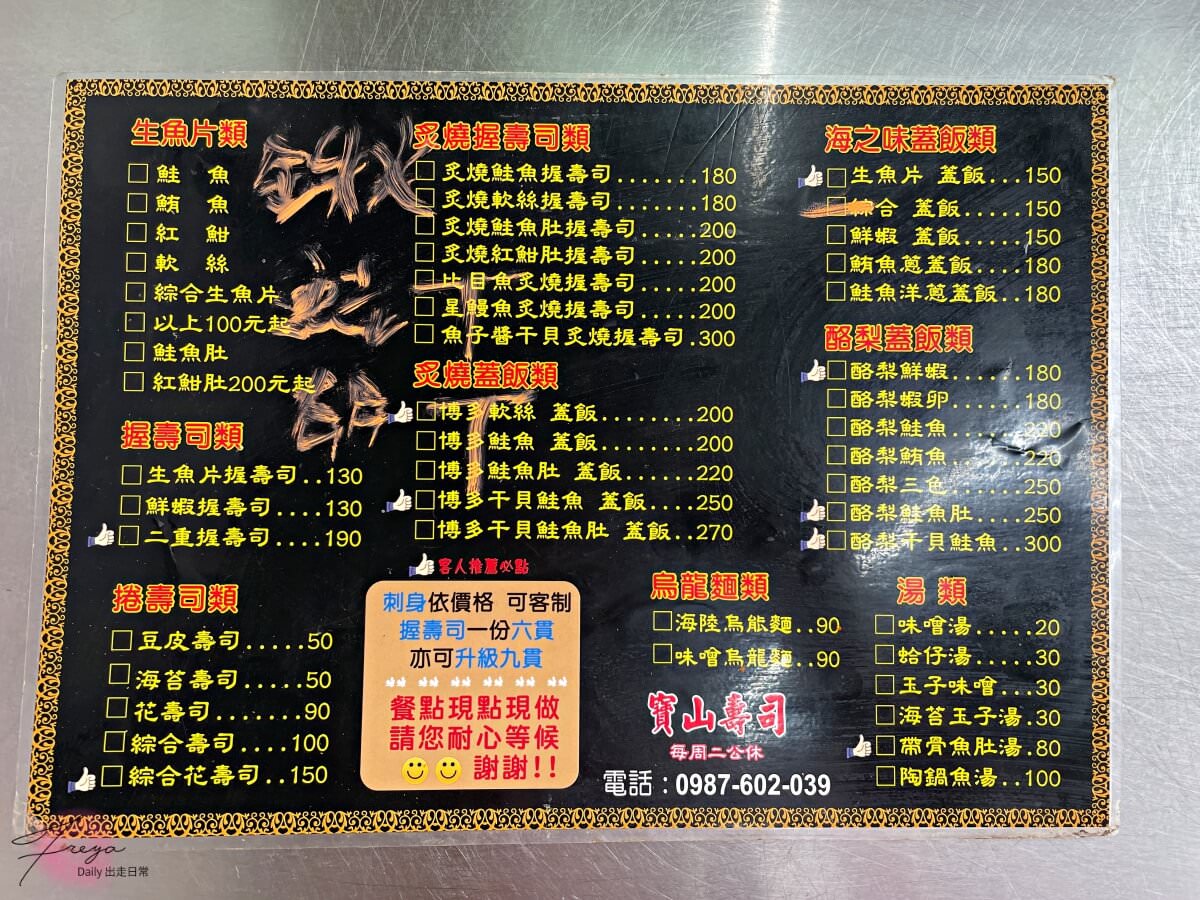 生魚片類
□ 鮭 魚
□ 鮪 魚
□ 紅 魽
□ 軟 絲
□ 綜合生魚片
□ 以上100元起
□ 鮭魚肚
□ 紅魽肚200元起
握壽司類
□生魚片握壽司..130
□鮮蝦握壽司....130
□二重握壽司....190
捲壽司類
□豆皮壽司.....50
□海苔壽司.....50
□花壽司.......90
□綜合壽司....100
□綜合花壽司..150
炙燒握壽司類
□炙燒鮭魚握壽司.......180
□炙燒軟絲握壽司.......180
□炙燒鮭魚肚握壽司.....200
□炙燒紅魽肚握壽司.....200
□比目魚炙燒握壽司.....200
□星鰻魚炙燒握壽司.....200
□魚子醬干貝炙燒握壽司.300
炙燒蓋飯類
□博多軟絲 蓋飯........200
□博多鮭魚 蓋飯........200
□博多鮭魚肚 蓋飯......220
□博多干貝鮭魚 蓋飯....250
□博多干貝鮭魚肚 蓋飯..270
客人推薦必點
刺身依價格 可客制
握壽司一份六貫
亦可升級九貫
餐點現點現做
請您耐心等候
謝謝!!
海之味蓋飯類
□生魚片 蓋飯...150
□綜合 蓋飯.....150
□鮮蝦 蓋飯.....150
□鮪魚蔥蓋飯....180
□鮭魚洋蔥蓋飯..180
酪梨蓋飯類
□酪梨鮮蝦......180
□酪梨蝦卵......180
□酪梨鮭魚......220
□酪梨鮪魚......220
□酪梨三色......250
□酪梨鮭魚肚....250
□酪梨干貝鮭魚..300
烏龍麵類
□海陸烏龍麵..90
□味噌烏龍麵..90
湯 類
□味噌湯.....20
□蛤仔湯.....30
□玉子味噌...30
□海苔玉子湯.30
□帶骨魚肚湯.80
□陶鍋魚湯..100
寶山壽司
每周二公休
電話：0987-602-039
Freya
Daily 出走日常